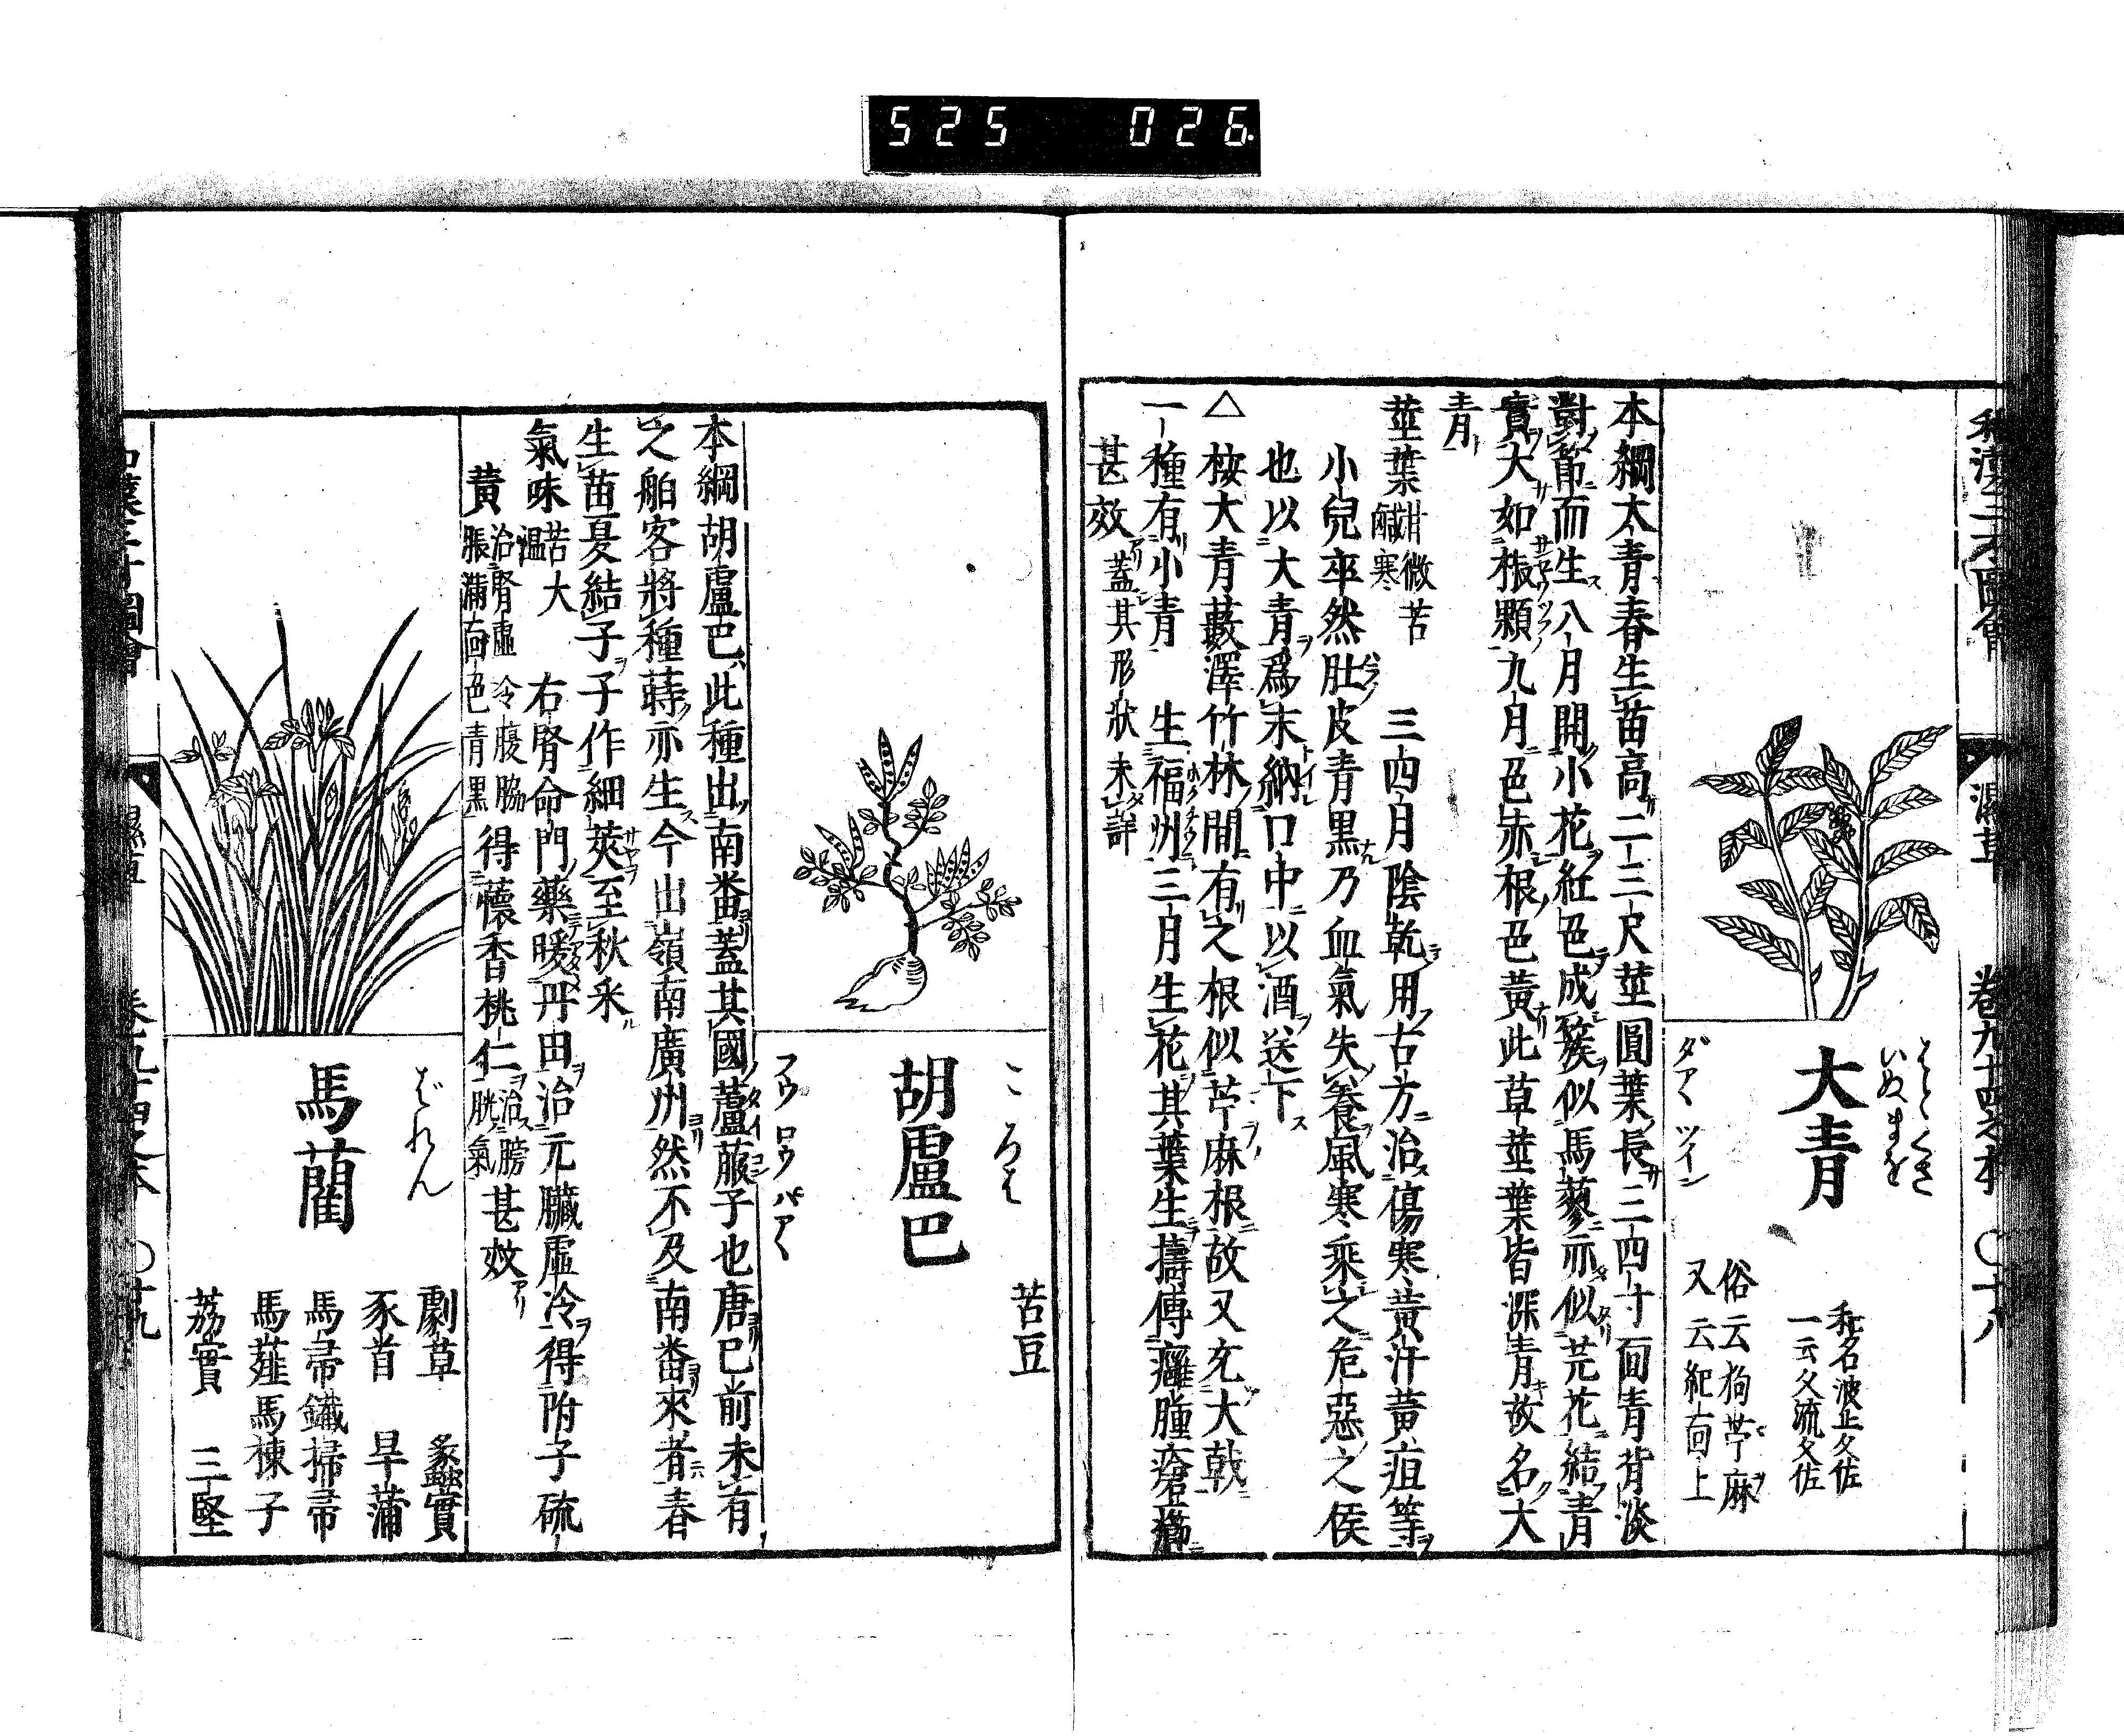 525 026.
和漢三才圖會 濕草 卷九十四之本 〇十八
はとくさ
いぬまを
大青
ダアヽ ツイン
和名波止久佐
一云久流久佐
俗云狗苧麻
又云紀向上
本綱大青春生苗高二三尺莖圓葉長三四寸面青背淡
對節而生八月開小花紅色成簇似馬蓼亦似芫花結青
實大如椒顆九月色赤根色黃此草莖葉皆深青故名大
青
莖葉甘微苦鹹寒 三四月陰乾用古方治傷寒黃汗黃疸等
小兒卒然肚皮青黑乃血氣失養風寒乘之危惡之侯
也以大青爲末納口中以酒送下
△ 桉大青藪澤竹林間有之根似苧麻根故又充大戟
一種有小青 生福州三月生花其葉生擣傅癰腫瘡癤
甚效蓋其形狀未詳
ころは
胡盧巴
フウ ロウ パアヽ
苦豆
本綱胡盧巴此種出南番蓋其國蘆菔子也唐已前未有
之舶客將種蒔亦生今出嶺南廣州然不及南番來者春
生苗夏結子子作細莢至秋采
氣味苦大温 右腎命門藥暖丹田治元臟虛冷得附子硫
黃治腎虛冷腹脇脹滿面色青黑得懷香桃仁治膀胱氣甚效
ばれん
馬藺
劇草 蠡實
豕首 旱蒲
馬帚 鐵掃帚
馬薤 馬楝子
荔實 三堅
和漢三才圖會 濕草 卷九十四之本 〇十九